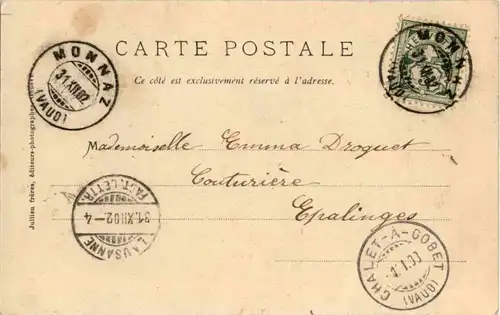 MONNAZ
31.XII.02
(VAUD)
CARTE POSTALE
MONNAZ
Ce côté est exclusivement réservé à l'adresse.
Jullien frères, éditeurs-photographes,
Mademoiselle Emma Droguet
Couturière
Epalinges
FACT. LETTR.
31.XII.02-4
LAUSANNE
CHALET-À-GOBET
1.I.03
(VAUD)